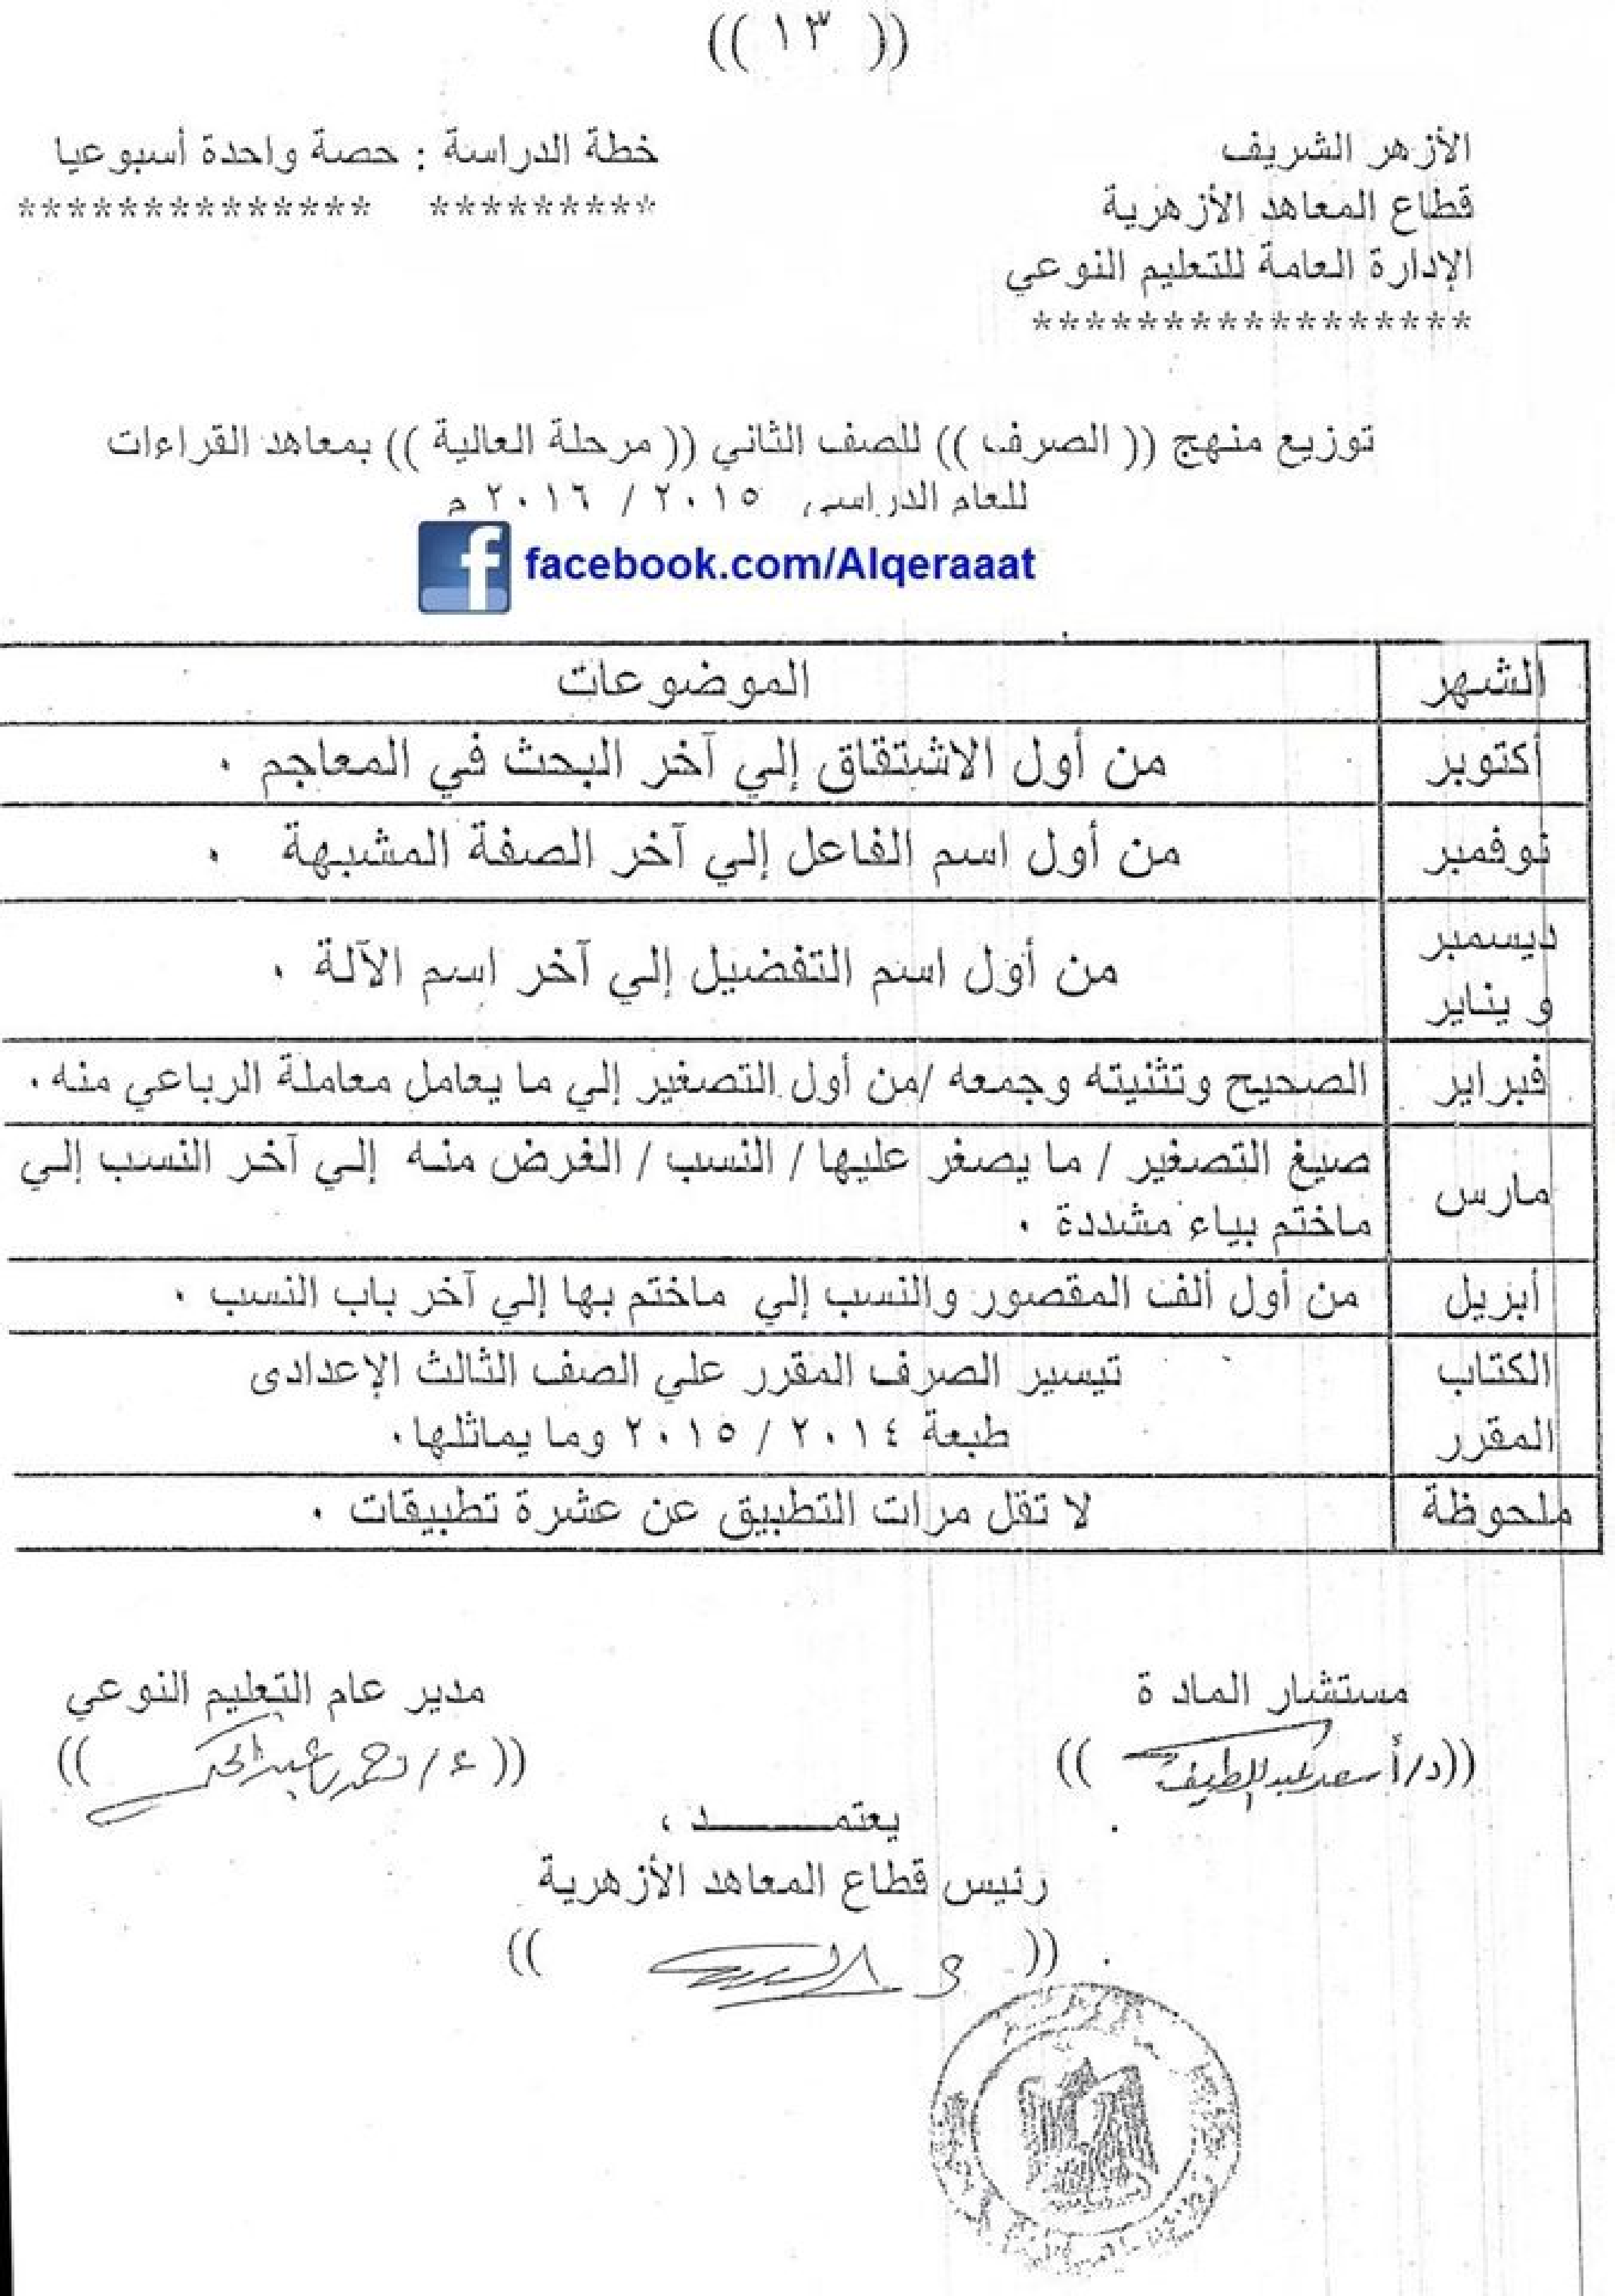 (( ١٣ ))
الأزهر الشريف
قطاع المعاهد الأزهرية
الإدارة العامة للتعليم النوعي
*****************
خطة الدراسة : حصة واحدة أسبوعيا
********* **************
توزيع منهج (( الصرف )) للصف الثاني (( مرحلة العالية )) بمعاهد القراءات
للعام الدراسي ٢٠١٥ / ٢٠١٦ م
facebook.com/Alqeraaat
الشهر الموضوعات
أكتوبر من أول الاشتقاق إلي آخر البحث في المعاجم .
نوفمبر من أول اسم الفاعل إلي آخر الصفة المشبهة .
ديسمبر
و يناير
من أول اسم التفضيل إلي آخر اسم الآلة .
فبراير الصحيح وتثنيته وجمعه /من أول التصغير إلي ما يعامل معاملة الرباعي منه .
مارس
صيغ التصغير / ما يصغر عليها / النسب / الغرض منه إلي آخر النسب إلي
ماختم بياء مشددة .
أبريل من أول ألف المقصور والنسب إلي ماختم بها إلي آخر باب النسب .
الكتاب
المقرر
تيسير الصرف المقرر علي الصف الثالث الإعدادى
طبعة ٢٠١٤ / ٢٠١٥ وما يماثلها .
ملحوظة لا تقل مرات التطبيق عن عشرة تطبيقات .
مستشار الماد ة
((د/أسعد عبد اللطيف ))
مدير عام التعليم النوعي
يعتمـــــد ،
رئيس قطاع المعاهد الأزهرية